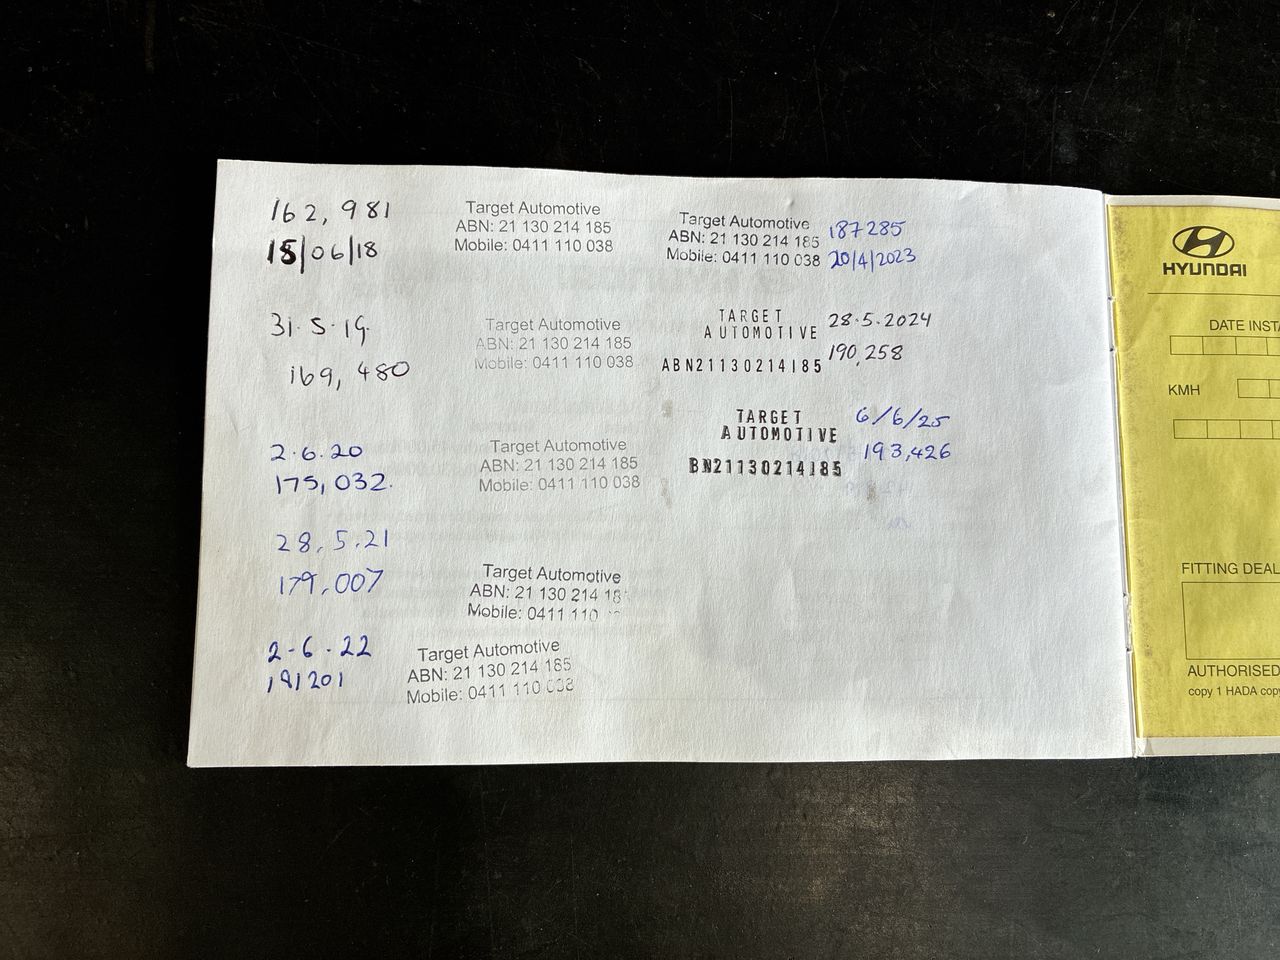 162,981
15/06/18
Target Automotive
ABN: 21 130 214 185
Mobile: 0411 110 038
31.5.19.
169,480
Target Automotive
ABN: 21 130 214 185
Mobile: 0411 110 038
2.6.20
175,032.
Target Automotive
ABN: 21 130 214 185
Mobile: 0411 110 038
28.5.21
179,007
Target Automotive
ABN: 21 130 214 18
Mobile: 0411 110
2-6.22
181201
Target Automotive
ABN: 21 130 214 185
Mobile: 0411 110 038
Target Automotive
ABN: 21 130 214 185
Mobile: 0411 110 038
187285
20/4/2023
TARGET
AUTOMOTIVE
ABN21130214185
28.5.2024
190,258
TARGET
AUTOMOTIVE
BN21130214185
6/6/25
193,426
HYUNDAI
DATE INSTA
KMH
FITTING DEAL
AUTHORISED
copy 1 HADA copy